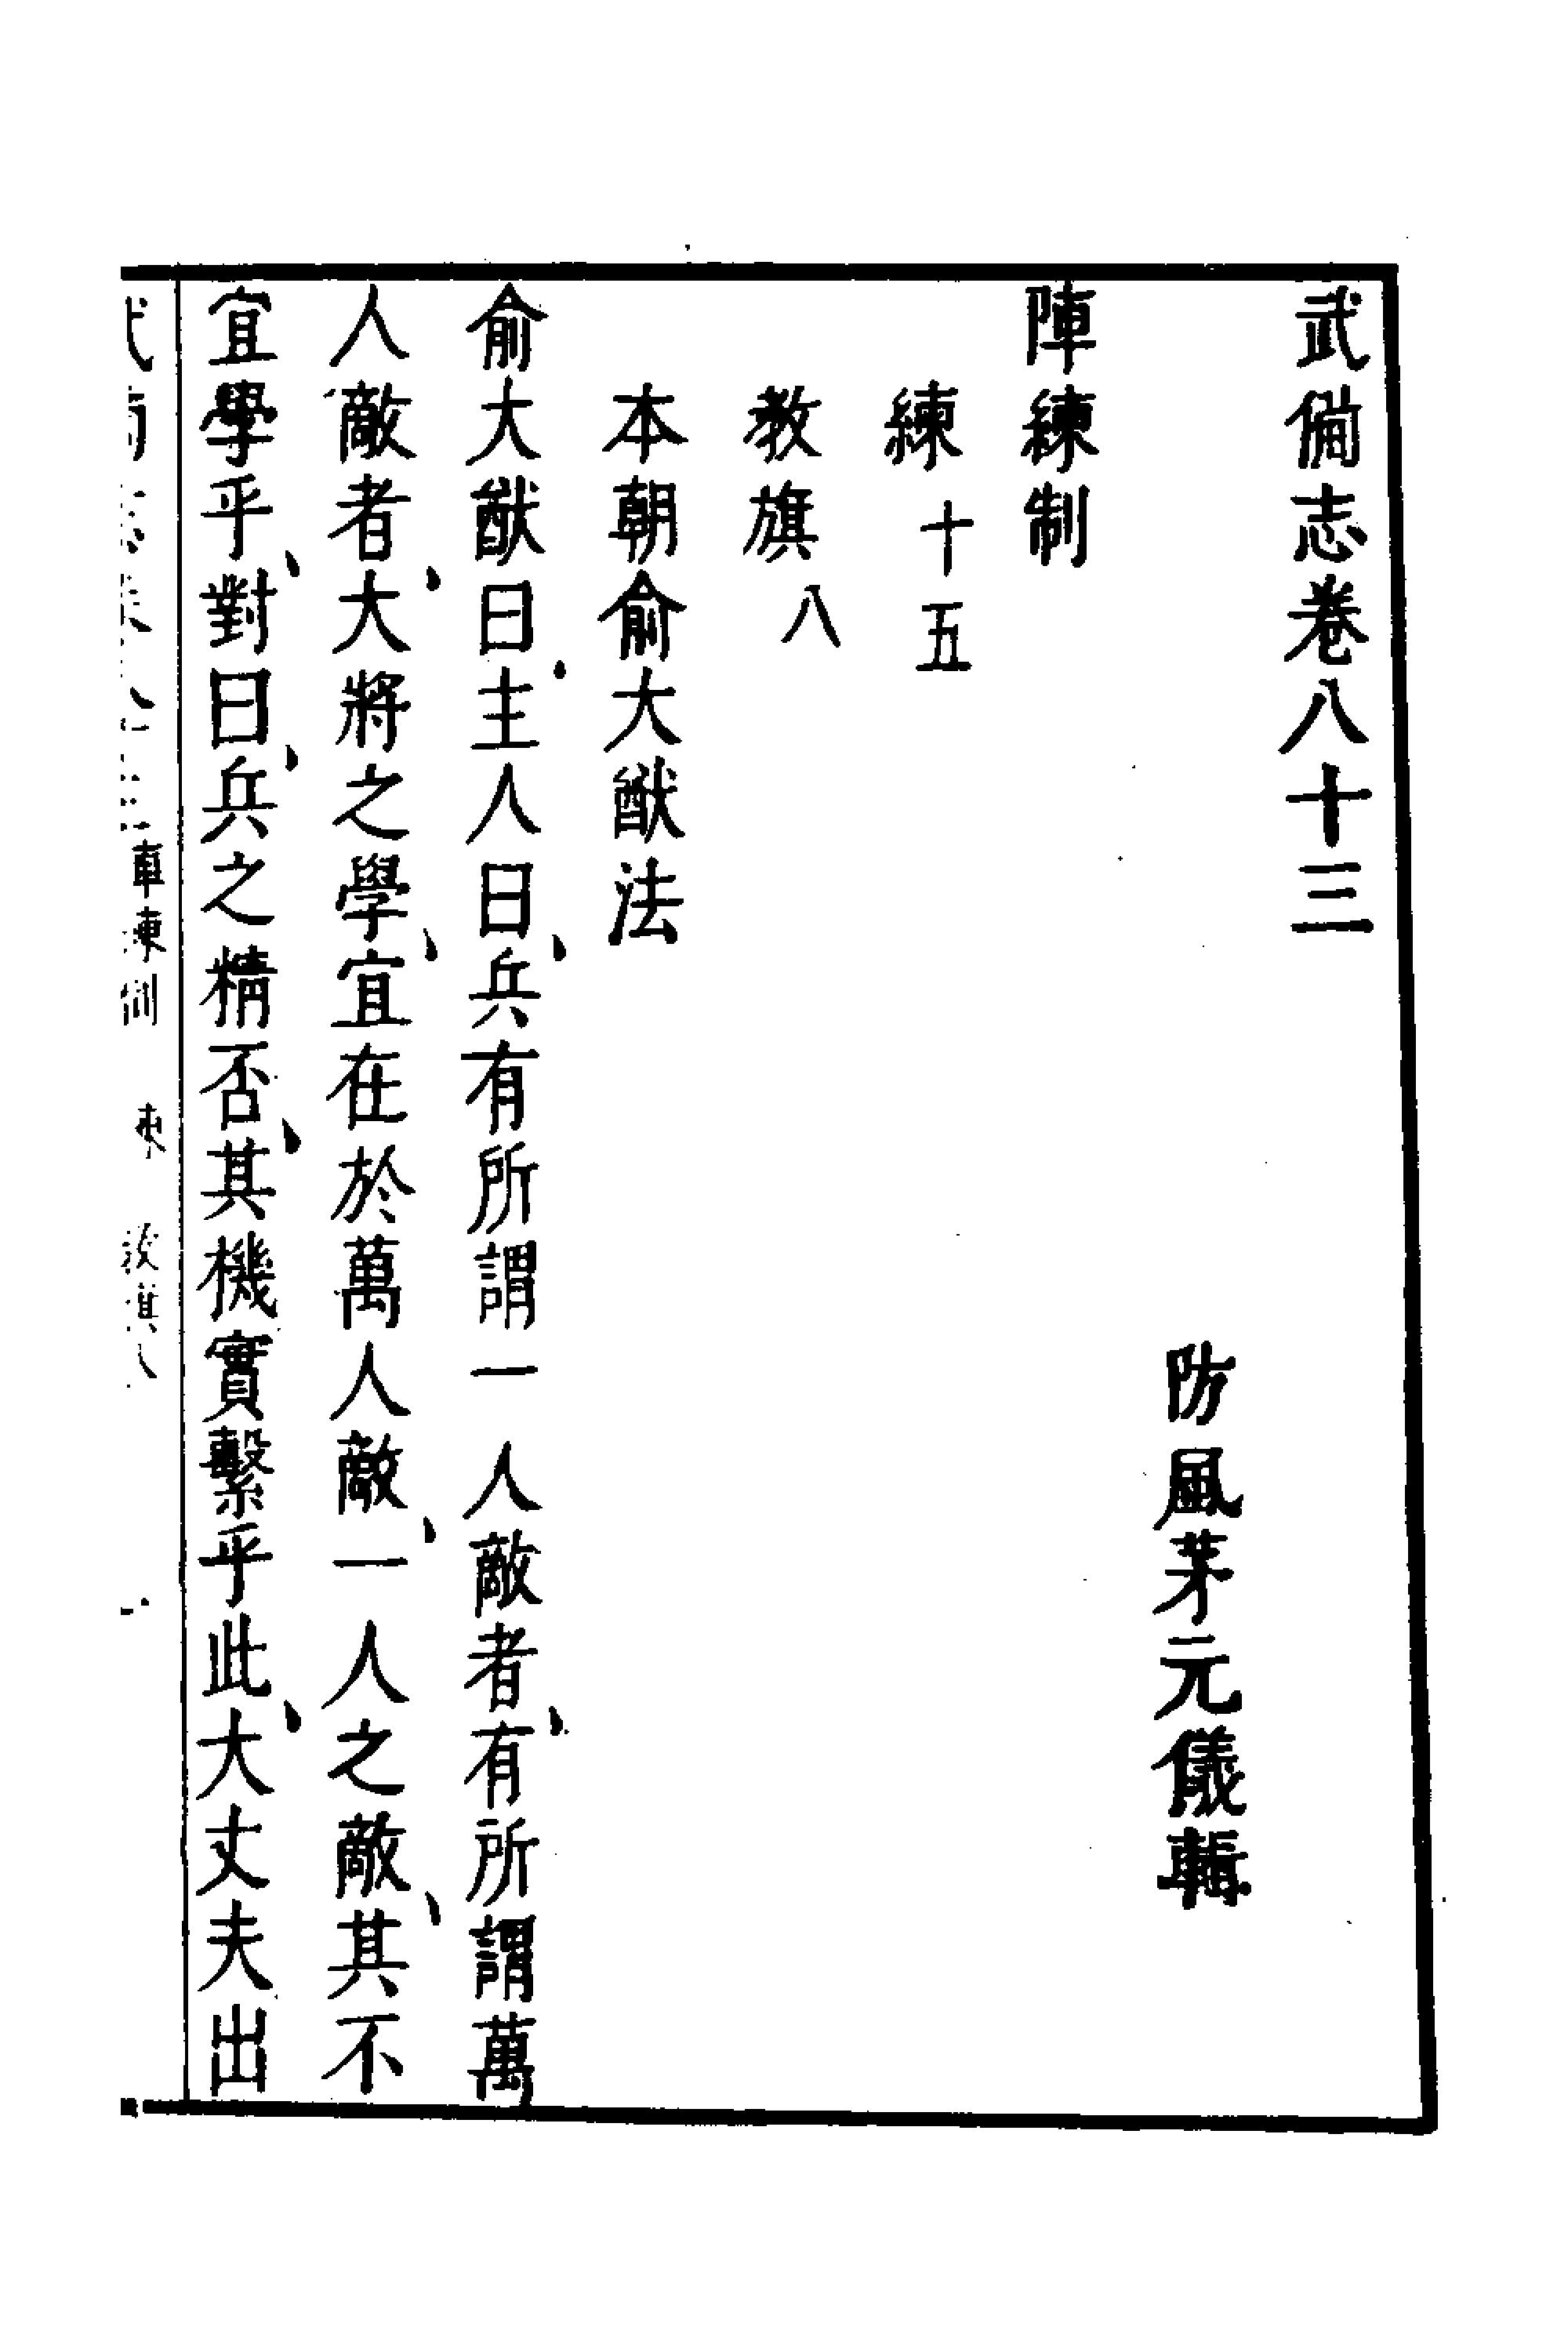 武備志卷八十三
防風茅元儀輯
陣練制
練十五
教旗八
本朝俞大猷法
俞大猷曰主人曰兵有所謂一人敵者、有所謂萬
人敵者、大將之學、宜在於萬人敵、一人之敵、其不
宜學乎、對曰、兵之精否、其機實繫乎此、大丈夫出